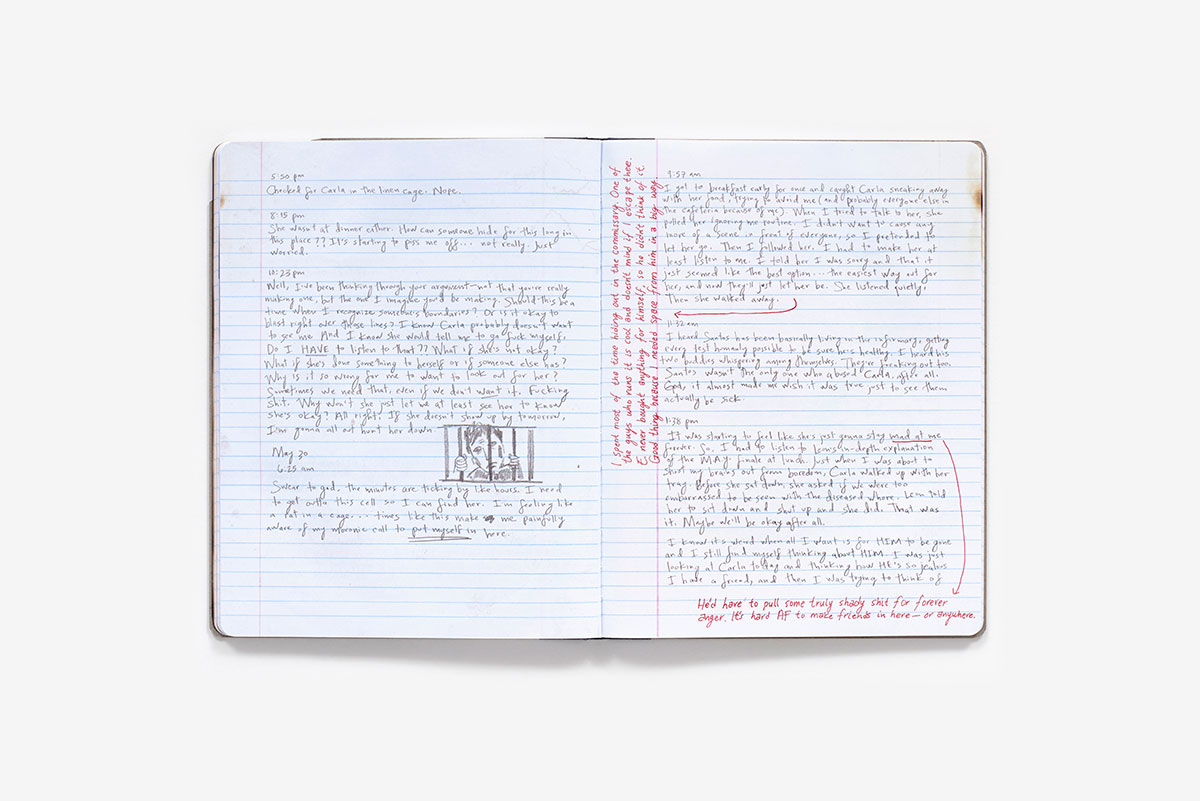 5:50 pm
Checked for Carla in the linen cage. Nope.
8:15 pm
She wasn't at dinner either. How can someone hide for this long in
this place?? It's starting to piss me off... not really. Just
worried.
10:23 pm
Well, I've been thinking through your argument—not that you're really
making one, but the one I imagine you'd be making. Should this be a
time when I recognize someone's boundaries? Or is it okay to
blast right over those lines? I know Carla probably doesn't want
to see me. And I know she would tell me to go fuck myself.
Do I HAVE to listen to that?? What if she's not okay?
What if she's done something to herself or if someone else has?
Why is it so wrong for me to want to look out for her?
Sometimes we need that, even if we don't want it. Fucking
shit. Why won't she just let me at least see her to know
she's okay? All right. If she doesn't show up by tomorrow,
I'm gonna all out hunt her down.
May 30
6:25 am
Swear to god, the minutes are ticking by like hours. I need
to get outta this cell so I can find her. I'm feeling like
a rat in a cage... times like this make me painfully
aware of my moronic call to put myself in here.
I spend most of the time hiding out in the commissary. One of
the guys who runs it is cool and doesn't mind if I escape there.
E never bought anything for himself, so he didn't think of it.
Good thing because I needed space from him in a big way.
9:57 am
I got to breakfast early for once and caught Carla sneaking away
with her food, trying to avoid me (and probably everyone else in
the cafeteria because of me). When I tried to talk to her, she
pulled her ignoring me routine. I didn't want to cause any
more of a scene in front of everyone, so I pretended to
let her go. Then I followed her. I had to make her at
least listen to me. I told her I was sorry and that it
just seemed like the best option... the easiest way out for
her, and now they'll just let her be. She listened quietly.
Then she walked away.
11:32 am
I heard Santos has been basically living in the infirmary, getting
every test humanly possible to be sure he's healthy. I heard his
two buddies whispering among themselves. They're freaking out too.
Santos wasn't the only one who abused Carla, after all.
God, it almost made me wish it was true just to see them
actually be sick.
1:38 pm
It was starting to feel like she's just gonna stay mad at me
forever. So, I had to listen to Lem's in-depth explanation
of the M.A.Y. finale at lunch. Just when I was about to
shoot my brains out from boredom, Carla walked up with her
tray. Before she sat down, she asked if we were too
embarrassed to be seen with the diseased whore. Lem told
her to sit down and shut up and she did. That was
it. Maybe we'll be okay after all.
I know it's weird when all I want is for HIM to be gone
and I still find myself thinking about HIM. I was just
looking at Carla today and thinking how HE's so jealous
I have a friend, and then I was trying to think of
He'd have to pull some truly shady shit for forever
anger. It's hard AF to make friends in here—or anywhere.